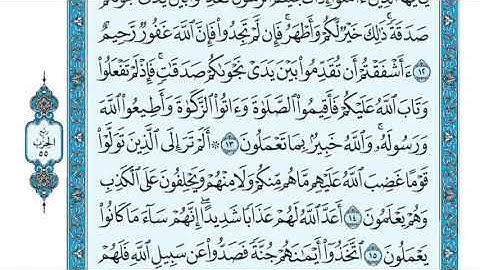 صَدَقَةً ۚ ذَٰلِكَ خَيْرٌ لَّكُمْ وَأَطْهَرُ ۚ فَإِن لَّمْ تَجِدُوا۟ فَإِنَّ ٱللَّهَ غَفُورٌ رَّحِيمٌ
١٢ ءَأَشْفَقْتُمْ أَن تُقَدِّمُوا۟ بَيْنَ يَدَىْ نَجْوَىٰكُمْ صَدَقَـٰتٍ ۚ فَإِذْ لَمْ تَفْعَلُوا۟
وَتَابَ ٱللَّهُ عَلَيْكُمْ فَأَقِيمُوا۟ ٱلصَّلَوٰةَ وَءَاتُوا۟ ٱلزَّكَوٰةَ وَأَطِيعُوا۟ ٱللَّهَ
وَرَسُولَهُۥ ۚ وَٱللَّهُ خَبِيرٌۢ بِمَا تَعْمَلُونَ ١٣ ۞ أَلَمْ تَرَ إِلَى ٱلَّذِينَ تَوَلَّوْا۟
قَوْمًا غَضِبَ ٱللَّهُ عَلَيْهِم مَّا هُم مِّنكُمْ وَلَا مِنْهُمْ وَيَحْلِفُونَ عَلَى ٱلْكَذِبِ
وَهُمْ يَعْلَمُونَ ١٤ أَعَدَّ ٱللَّهُ لَهُمْ عَذَابًا شَدِيدًا ۖ إِنَّهُمْ سَآءَ مَا كَانُوا۟
يَعْمَلُونَ ١٥ ٱتَّخَذُوٓا۟ أَيْمَـٰنَهُمْ جُنَّةً فَصَدُّوا۟ عَن سَبِيلِ ٱللَّهِ فَلَهُمْ
الحزب
٥٥